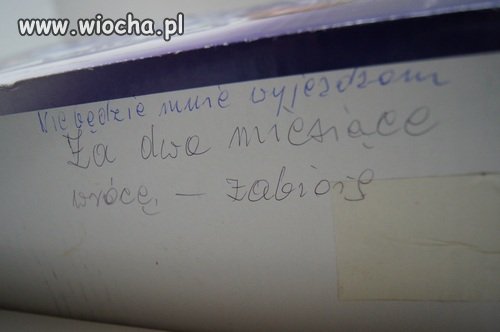 www.wiocha.pl
Nie będzie mnie wyjeżdżam
Za dwa miesiące
wrócę, – zabiorę